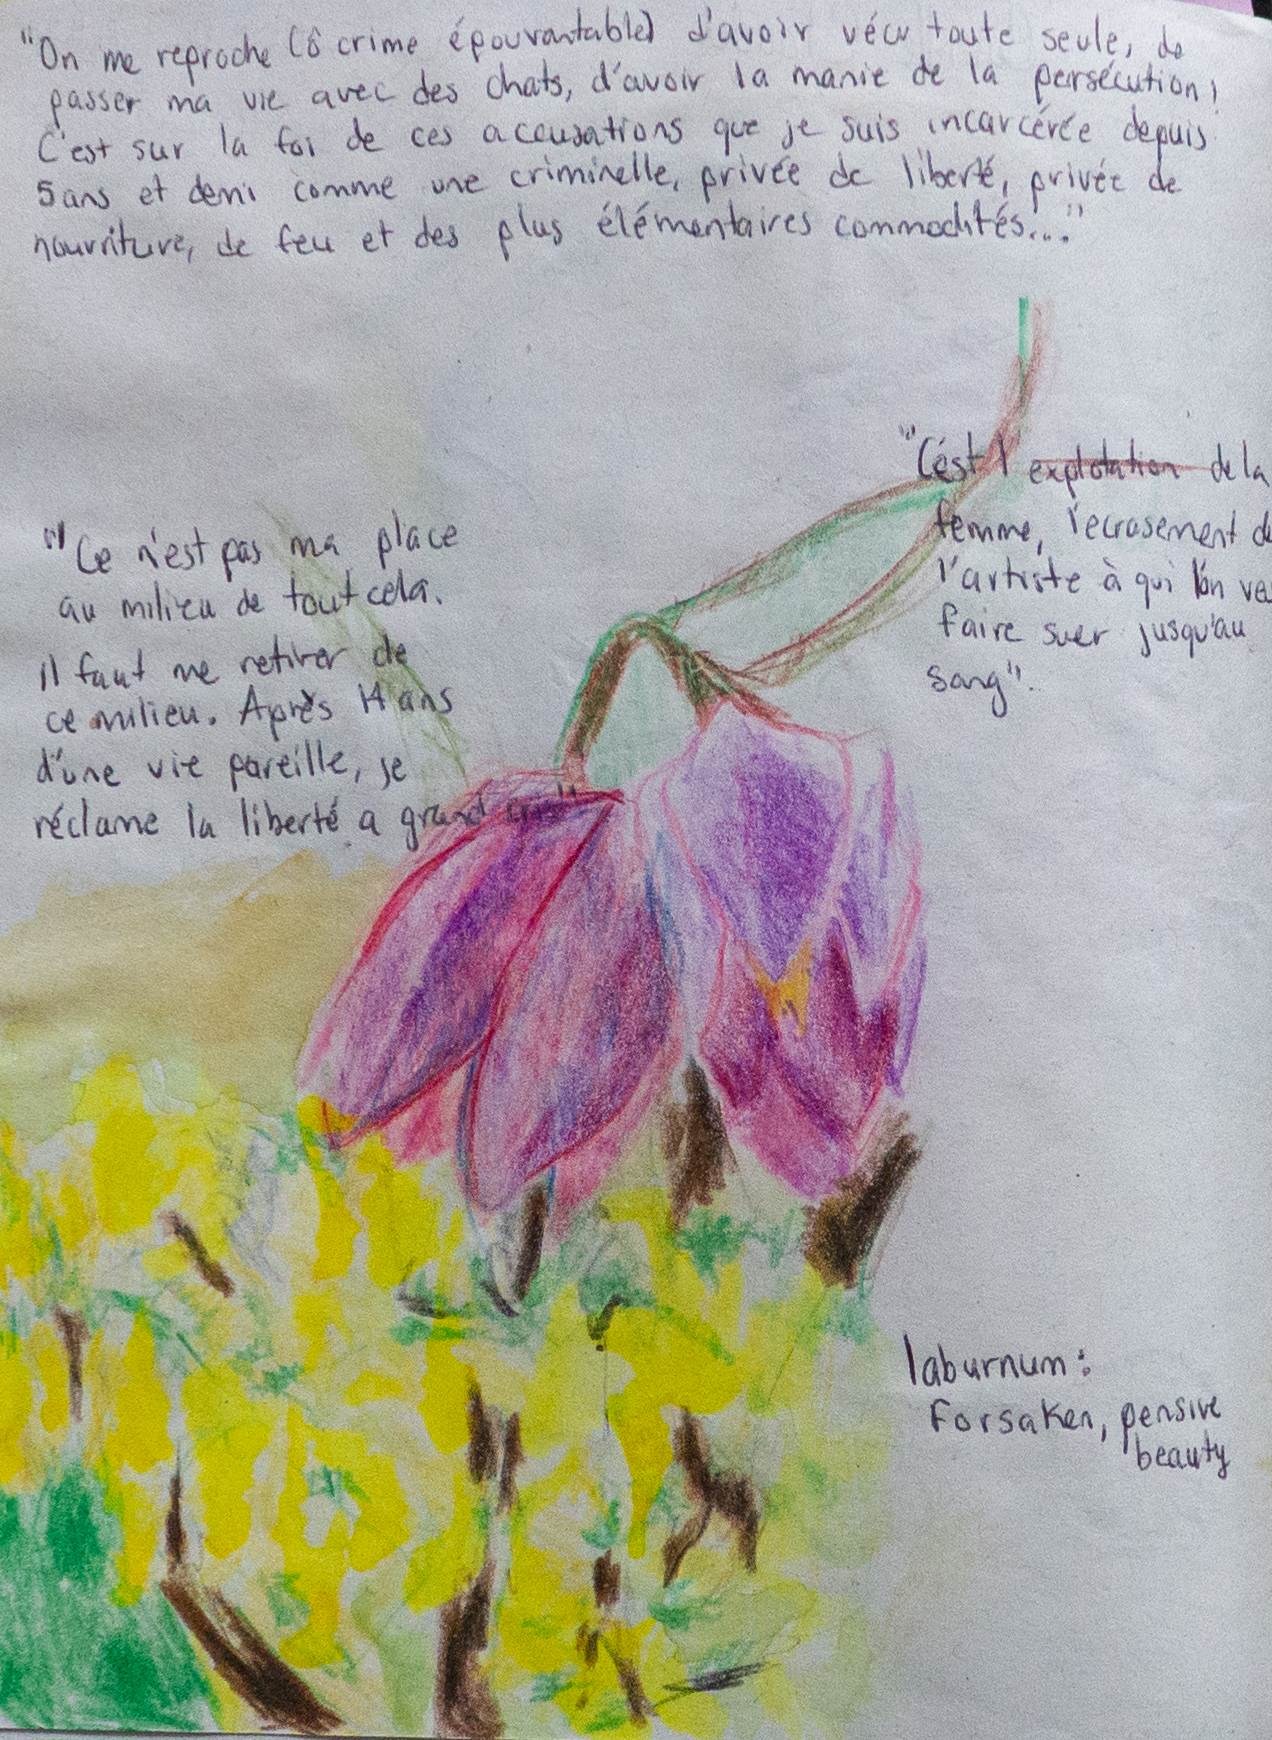 "On me reproche (ô crime épouvantable) d'avoir vécu toute seule, de
passer ma vie avec des chats, d'avoir la manie de la persécution!
C'est sur la foi de ces accusations que je suis incarcérée depuis
5 ans et demi comme une criminelle, privée de liberté, privée de
nourriture, de feu et des plus élémentaires commodités..."
"Ce n'est pas ma place
au milieu de tout cela.
il faut me retirer de
ce milieu. Après 14 ans
d'une vie pareille, je
réclame la liberté a grand cris"
"C'est l'explotation de la
femme, l'ecrasement de
l'artiste à qui l'on
faire suer jusqu'au
sang".
laburnum:
Forsaken, pensive
beauty